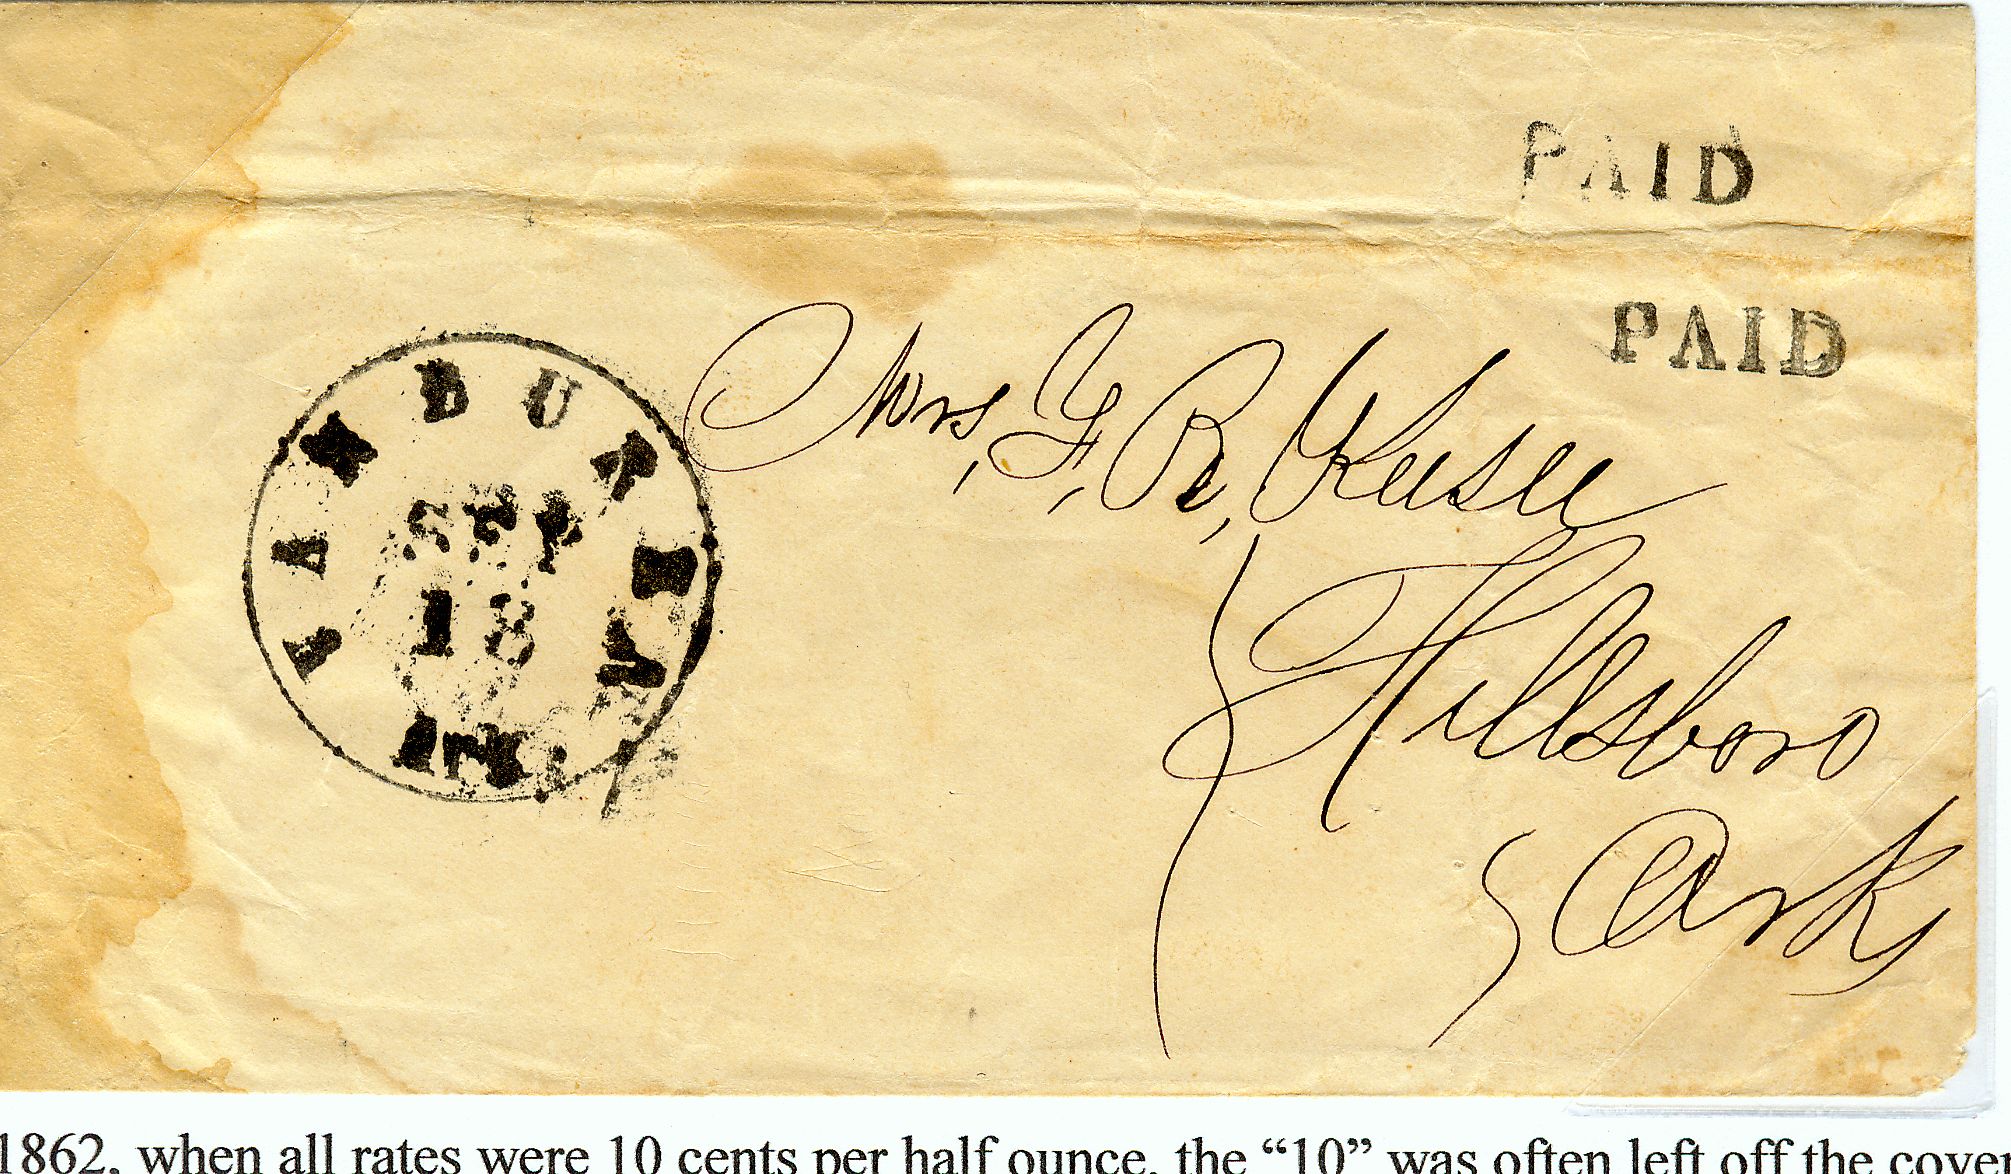 PAID
PAID
VAN BUREN
SEP
18
Ark
Mrs, F, R, Kersee
Hillsboro
Arks
1862, when all rates were 10 cents per half ounce, the “10” was often left off the cover